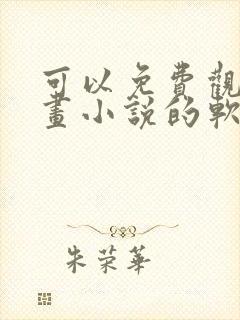 可以免費觀
畫小說的軟
朱荣華